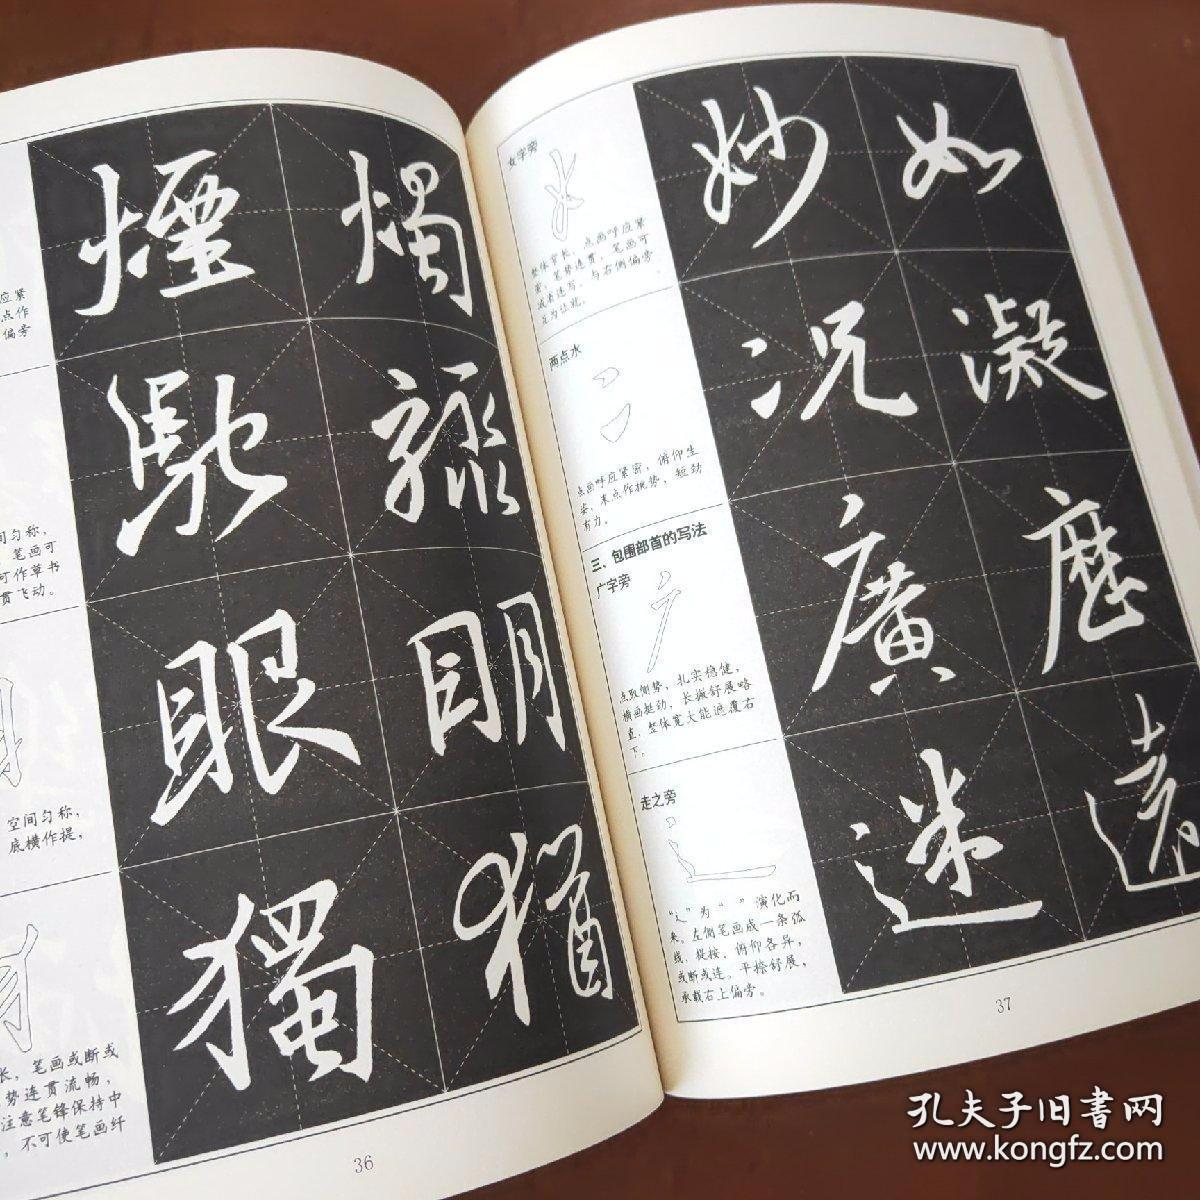 应紧
点作
偏旁
间匀称，
，笔画可
可作草书
贯飞动。
空间匀称，
底横作提，
长，笔画或断或
势连贯流畅，
注意笔锋保持中
，不可使笔画纤
煙 燭
馳
眼 明
獨 猶
36
女字旁
整体窄长，点画呼应紧
密，笔势连贯，笔画可
与右侧偏旁
互为让就。
两点水
点画呼应紧密，俯仰生
姿，末点作挑势，短劲
有力。
三、包围部首的写法
广字旁
点取侧势，扎实稳健，
横画挺劲，长撇舒展略
直，整体宽大能遮覆右
下。
走之旁
“辶”为“ ”演化而
来，左侧笔画成一条弧
线，提按、俯仰各异，
或断或连，平捺舒展，
承载右上偏旁。
妙 如
况 凝
廣 歷
迷 遠
37
孔夫子旧書网
www.kongfz.com